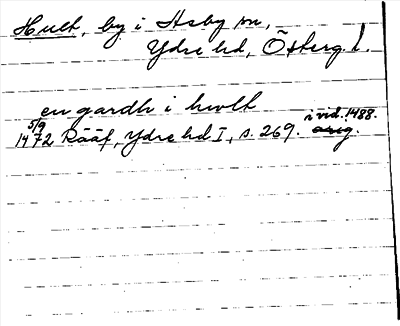 Hult, by i Asby sn,
Ydre hd, Österg. l.
en gardh i hwlt
5/9 i vid. 1488.
1472 Rääf, Ydre hd I, s. 269. orig.